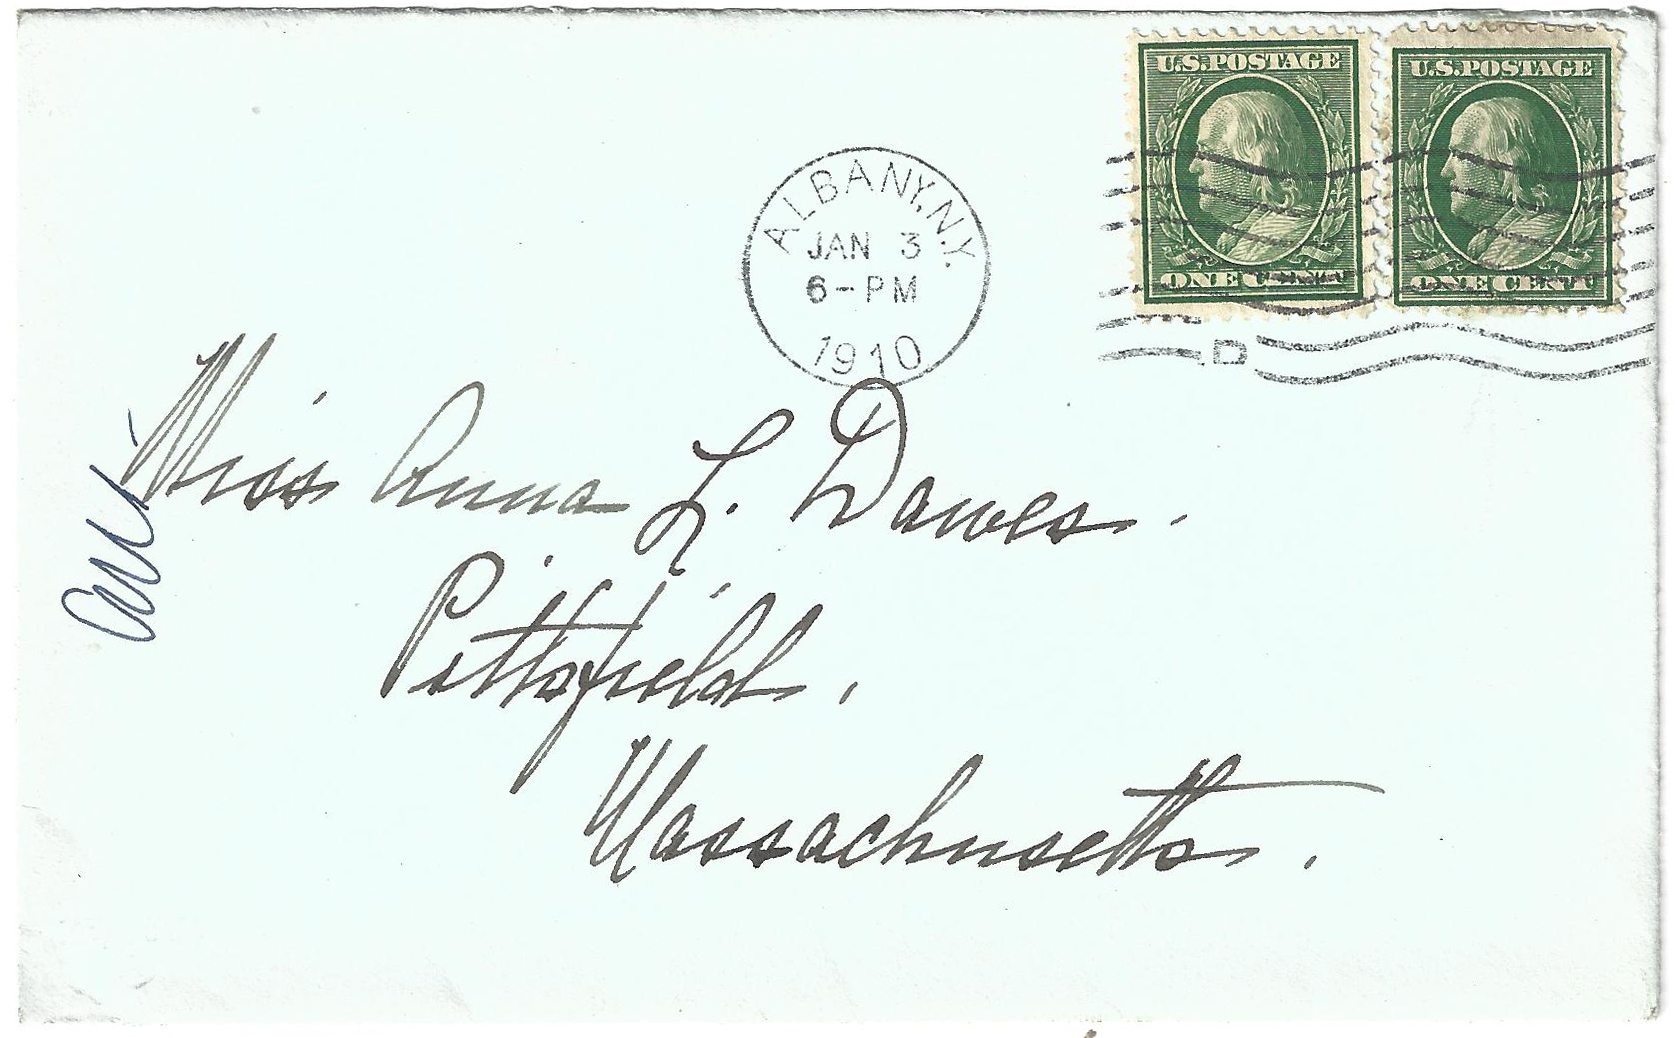 U.S. POSTAGE
ONE CENT
U.S. POSTAGE
ONE CENT
ALBANY, N.Y.
JAN 3
6-PM
1910
D
Miss Anna L. Dawes.
Pittsfield.
Massachusetts.